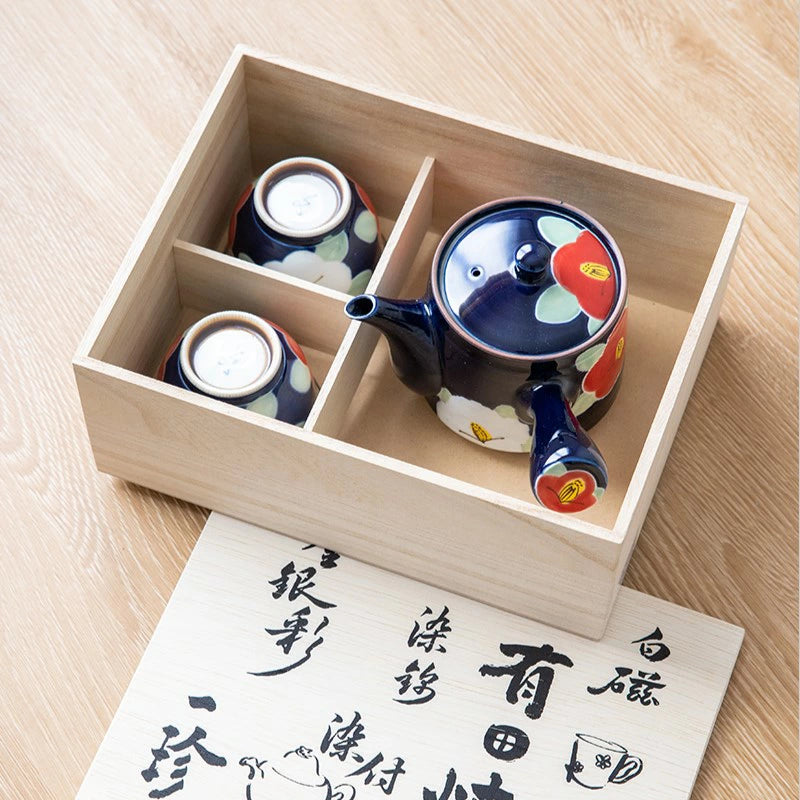 白磁
有田焼
染錦
銀彩
染付
一珍